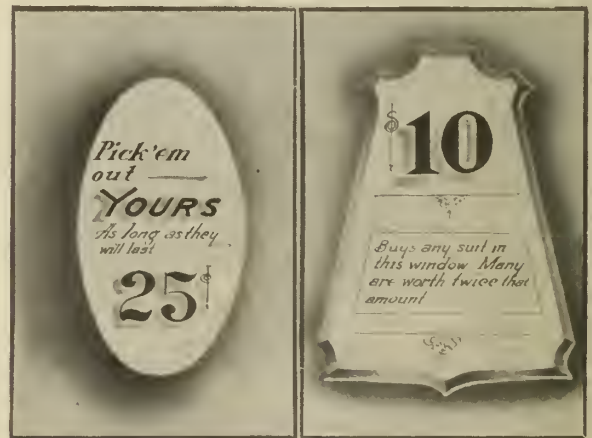 Pick'em
out
YOURS
As long as they
will last
25¢
$10
Buys any suit in
this window Many
are worth twice that
amount